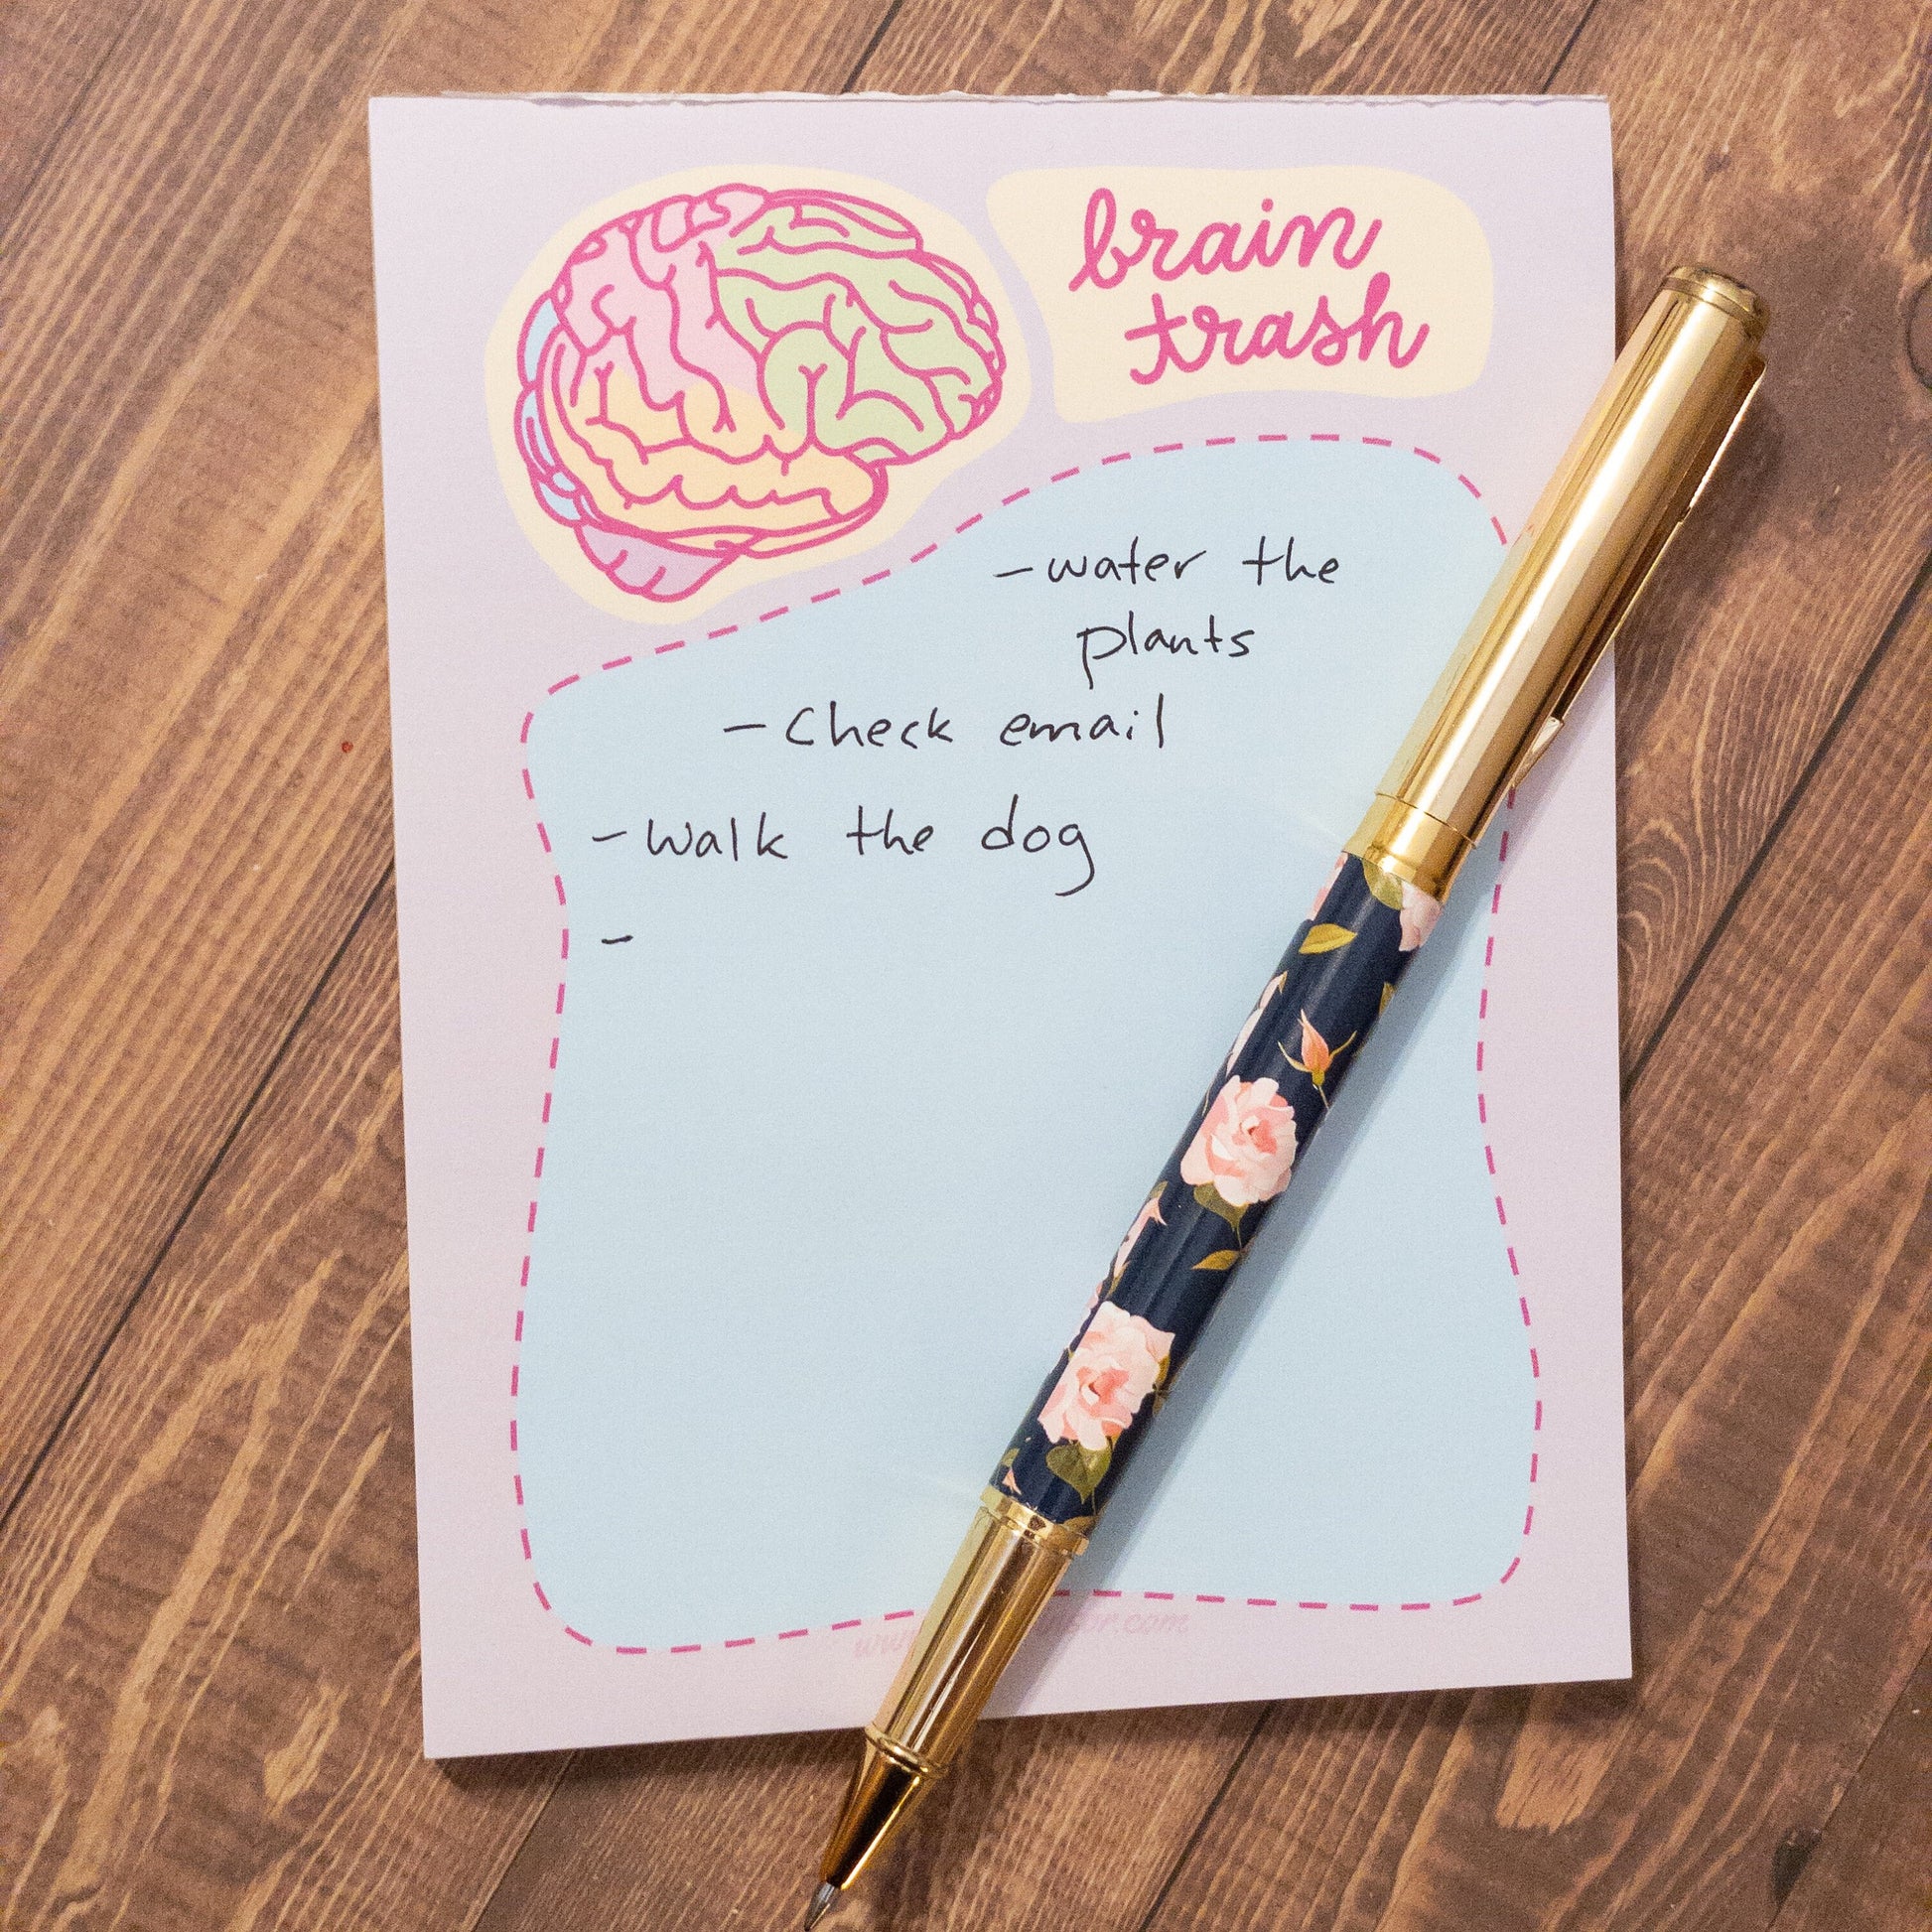 brain
trash
-water the
plants
-Check email
-walk the dog
-